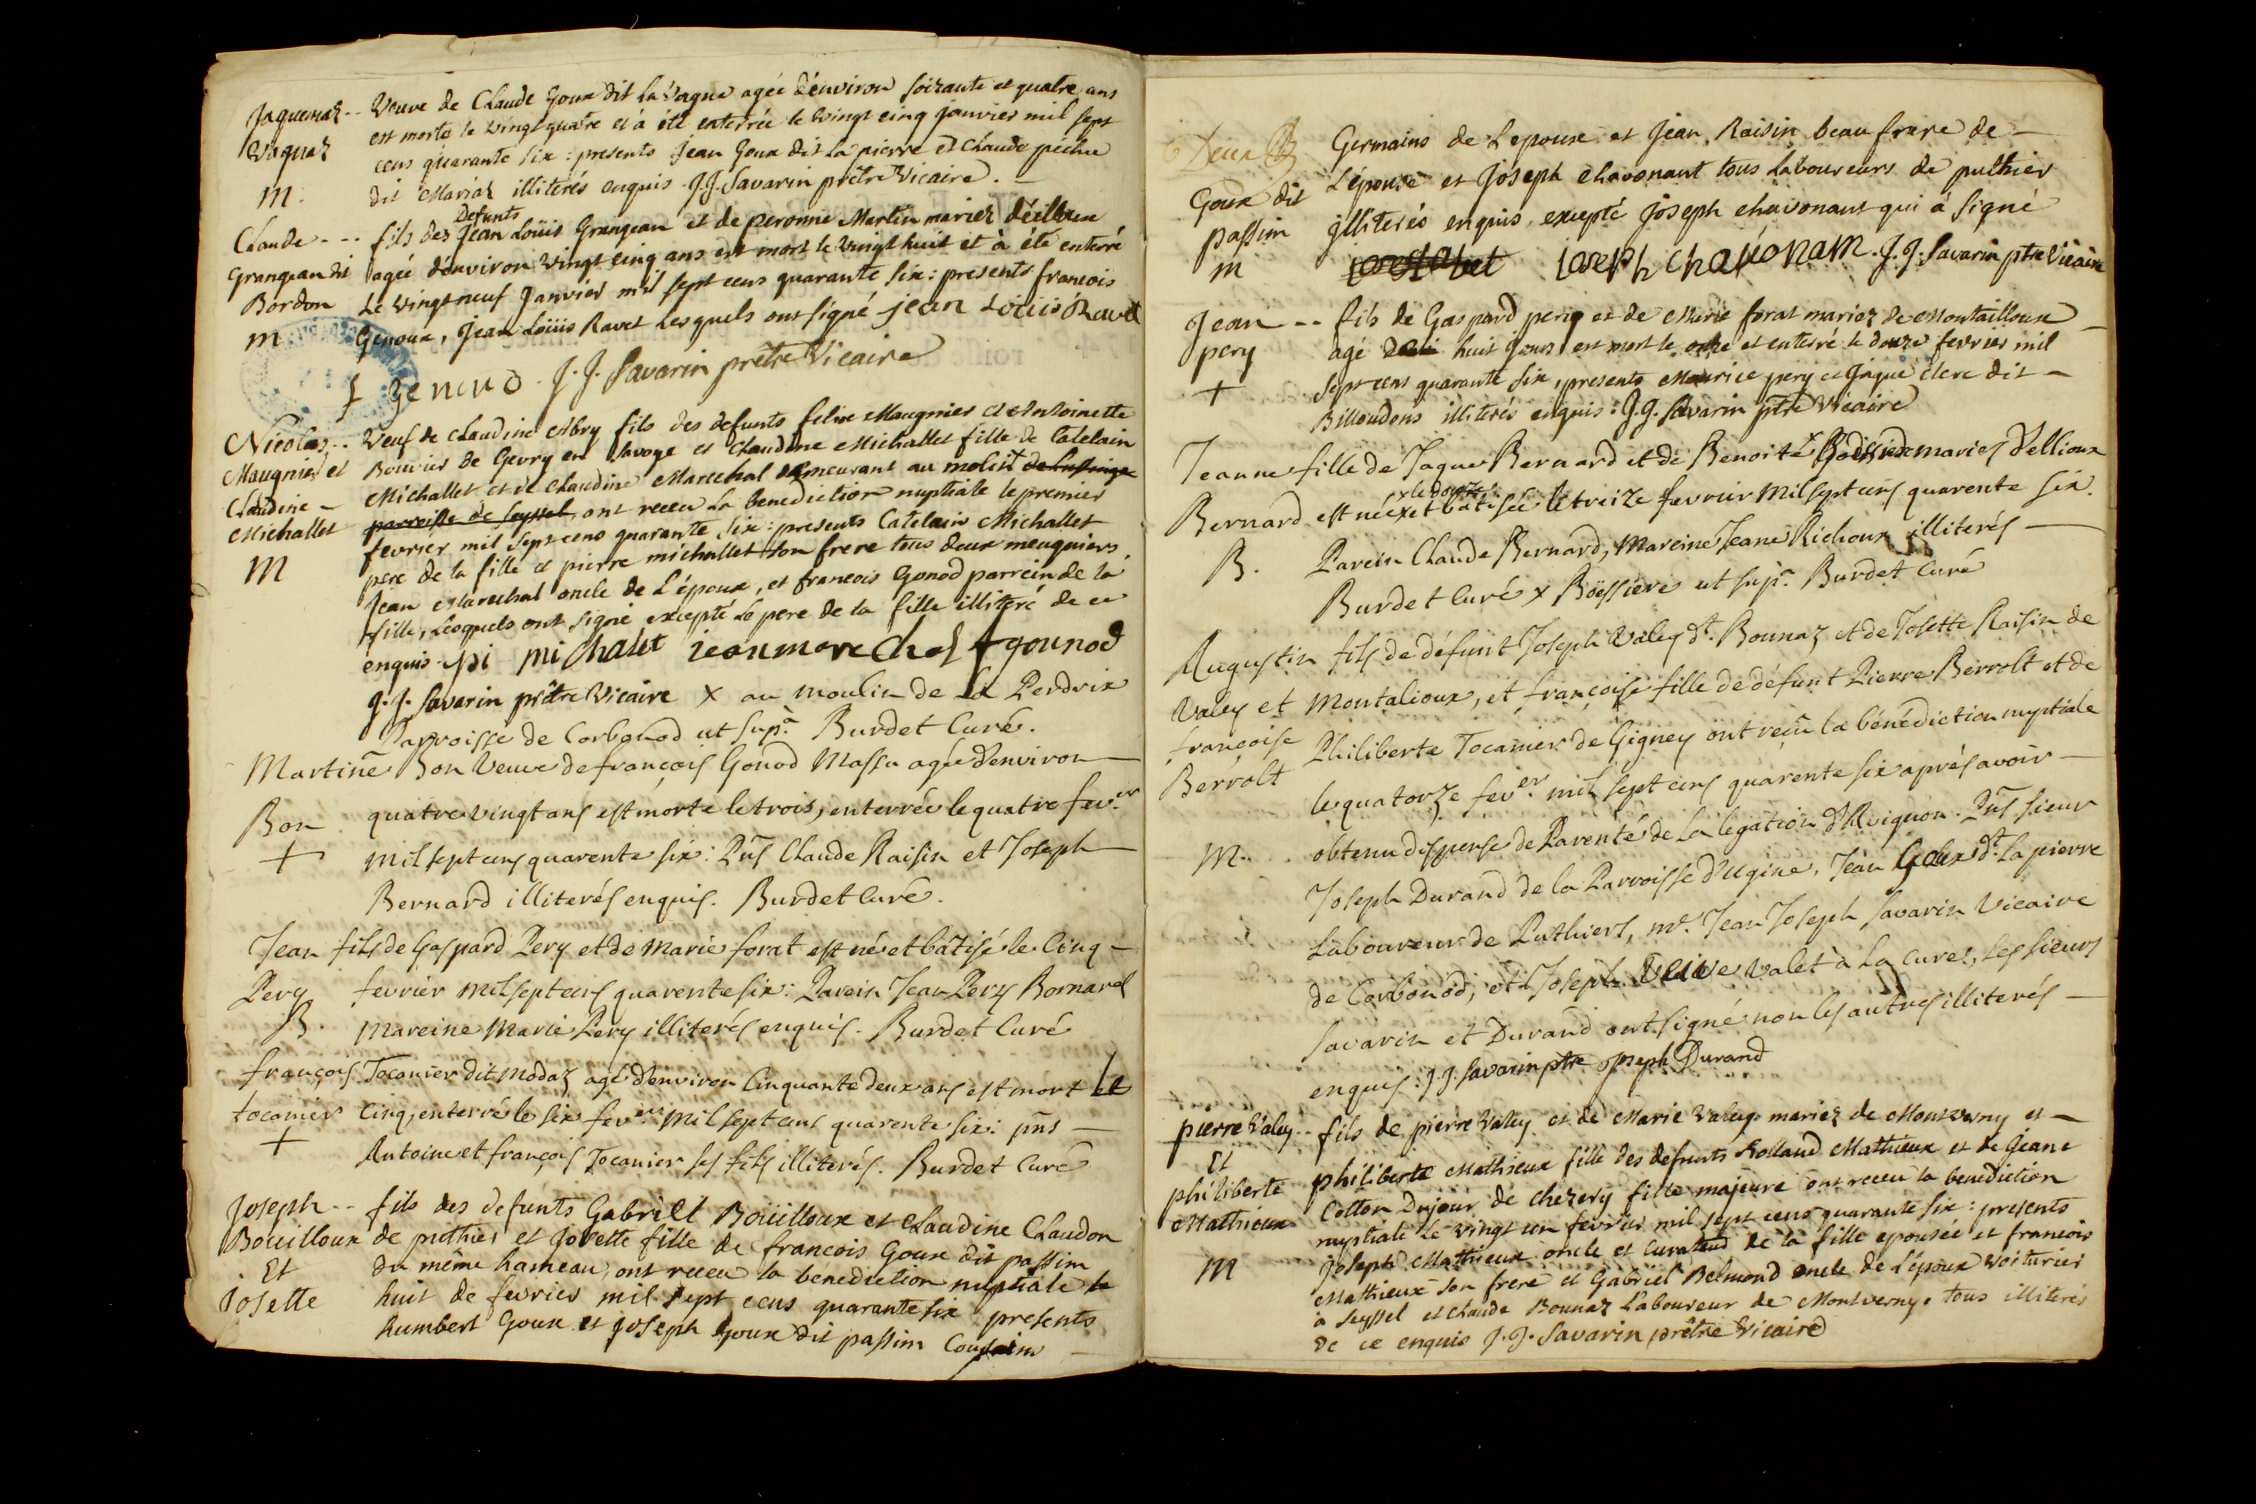 Jaquemaz -- Veuve de Claude Goux dit la Vogne agée d'environ soixante et quatre ans
Vognaz est morte le vingt quatre et à été enterrée le vingt cinq janvier mil sept
cens quarante six : presents Jean Goux dit La pierre et Claude pichu
M. dit Mariaz illiterés enquis. J.J. Savarin prêtre Vicaire.
Defunts
Claude --- fils des Jean Loüis Granjean et de peronne Martin mariez d'eilloux
Granjean dit agée d'environ vingt cinq ans est mort le vingt huit et à été enterré
Bordon Le vingt neuf Janvier mil sept cens quarante six : presents francois
m Genoux, Jean Loüis Ravet lesquels ont signé jean Loüis Ravet
f genoud. J. J. Savarin prêtre Vicaire
Nicolas -- Veuf de Claudine Abry fils des defunts felix Maugnier et Antoinette
Maugnier et Bouvier de Gevry en Savoye et Claudine Michallet fille de Catelain
Claudine - Michallet et de Claudine Marechal demeurant au molin de
Michallet parroisse de Seyssel ont receu la benediction nuptiale le premier
M fevrier mil sept cens quarante six : presents Catelain Michallet
pere de la fille et pierre michallet son frere tous deux meugniers,
Jean Marechal oncle de L'époux, et francois Gonod parrein de la
fille, Lesquels ont signé excepté Le pere de la fille illiteré de ce
enquis. pi mi chalet iean marechal f gounod
J. J. Savarin prêtre Vicaire x au moulin de La Perdrix
Parroisse de Corbonod ut supà. Burdet Curé.
Martine Bon Veuve de françois Gonod Massu agée d'environ
Bon quatre vingt ans est morte le trois, enterrée le quatre fever
+ mil sept cens quarente six : Pñs Claude Raisin et Joseph
Bernard illiterés enquis. Burdet Curé.
Jean fils de Gaspard Pery et de Marie forat est né et bâtisé le Cinq
Pery fevrier mil sept cens quarente six : Parein Jean Pery Bomarel
B. mareine Marie Pery illiterés enquis. Burdet Curé
françois Tocanier dit Modaz agé d'environ Cinquante deux ans est mort le
tocanier Cinq, enterré le six fever mil sept cens quarente six : pñs
+ Antoine et françois Tocanier ses fils illiterés. Burdet Curé
Joseph -- fils des defunts Gabriel Boüilloux et Claudine Chaudon
Bouilloux de puthier et Josette fille de francois Goux dit passim
Et du même hameau, ont receu la benediction nuptiale le
Josette huit de fevrier mil sept cens quarante six presents
humbert Goux et Joseph Goux dit passim Cousins
Germains de L'epouse et Jean Raisin beau frere de
Goux dit L'épouse et Joseph Chavonant tous Laboureurs de puthier
passim illiterés enquis, excepté Joseph chavonant qui à signé
m ioseph chavonam. J. J. Savarin ptre Vicaire
Jean -- fils de Gaspard pery et de Marie forat mariez de Montailloux
pery agé huit jours est mort le onze et enterré le douze fevrier mil
+ sept cens quarante six, presents Maurice pery et Jaque Clerc dit
Billoudons illiterés enquis : J. J. Savarin ptre Vicaire
Jeanne fille de Jaque Bernard et de Benoite mariés d'ellioux
x le douze
Bernard est née x et batisée le treize fevrier mil sept cens quarente six.
B. Parein Claude Bernard, Mareine Jeane Richoux illiterés
Burdet Curé x Boëssiere ut supà. Burdet Curé
Augustin fils de défunt Joseph Valey dt. Bounaz et de Josette Raisin de
Valey et Montalioux, et françoise fille de défunt Pierre Berrolt et de
françoise Philiberte Tocanier de Gigney ont reçu la bénédiction nuptiale
Berrolt le quatorze fever mil sept cens quarente six après avoir
M. obtenu dispense de Parenté de la legation d'Avignon. Pñs sieur
Joseph Durand de la Parroisse d'Ugine, Jean Goux dt. la pierre
Laboureur de Puthiert, me. Jean Joseph Savarin Vicaire
de Corbonod, et Joseph valet à La Cure, les sieurs
Savarin et Durand ont signé non les autres illiterés
enquis. J. J. Savarin ptre Joseph Durand
pierre Valey -- fils de pierre Valey et de Marie Valey mariez de Montverny et
Et philiberte Mathieux fille des defunts Rolland Mathieux et de Jeane
philiberte Cotton Dujour de Chezery fille majeure ont receu la benediction
Mathieux nuptiale le vingt un fevrier mil sept cens quarante six : presents
M Joseph Mathieux oncle et curateur de la fille epousée et francois
Mathieux son frere et Gabriel Belmond oncle de L'époux voiturier
à Seyssel et Claude Bounaz Laboureur de Montverny. tous illiterés
de ce enquis J. J. Savarin prêtre Vicaire